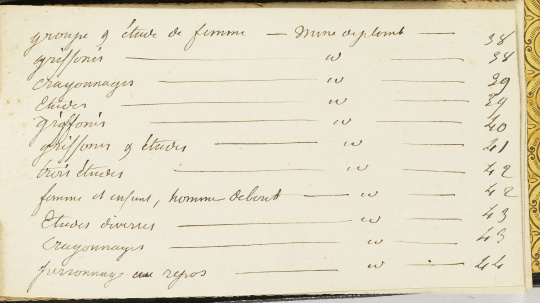 groupe & étude de femme — Mine de plomb — 38
griffonis — w — 38
crayonnages — w — 39
Etudes — w — 39
griffonis — w — 40
griffonis & études — w — 41
trois études — w — 42
femme et enfant, homme debout — w — 42
Etudes diverses — w — 43
Crayonnages — w — 43
personnage au repos — w — 44